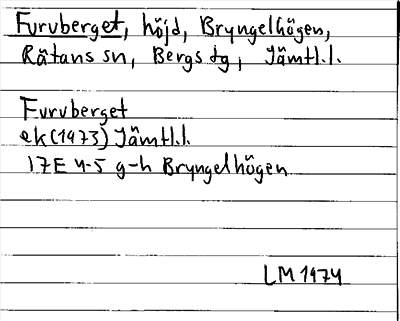 Furuberget, höjd, Bryngelhögen,
Rätans sn, Bergs tg, Jämtl.l.
Furuberget
ek (1973) Jämtl.l.
17E 4-5 g-h Bryngelhögen
LM 1974